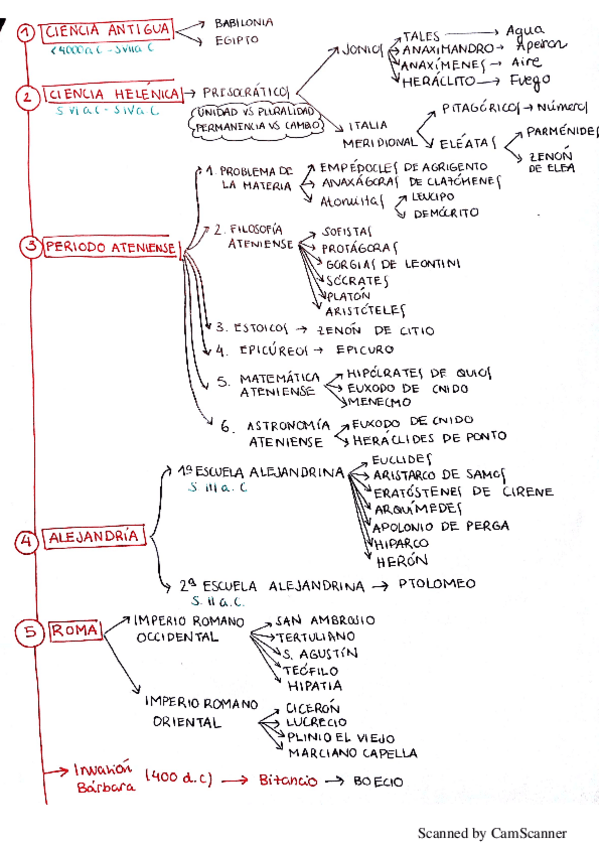 1 CIENCIA ANTIGUA
<4000 a.C - S VII a.C
BABILONIA
EGIPTO
2 CIENCIA HELÉNICA → PRESOCRÁTICOS
S VI a.C - S IV a.C
UNIDAD VS PLURALIDAD
PERMANENCIA VS CAMBIO
JONIOS
TALES → Agua
ANAXIMANDRO → Ápeiron
ANAXÍMENES → Aire
HERÁCLITO → Fuego
ITALIA
MERIDIONAL
PITAGÓRICOS → Números
ELÉATAS
PARMÉNIDES
ZENÓN
DE ELEA
3 PERIODO ATENIENSE
1. PROBLEMA DE
LA MATERIA
EMPÉDOCLES DE AGRIGENTO
ANAXÁGORAS DE CLAZÓMENES
Atomistas
LEUCIPO
DEMÓCRITO
2. FILOSOFÍA
ATENIENSE
SOFISTAS
PROTÁGORAS
GORGIAS DE LEONTINI
SÓCRATES
PLATÓN
ARISTÓTELES
3. ESTOICOS → ZENÓN DE CITIO
4. EPICÚREOS → EPICURO
5. MATEMÁTICA
ATENIENSE
HIPÓCRATES DE QUIOS
EUXODO DE CNIDO
MENECMO
6. ASTRONOMÍA
ATENIENSE
EUXODO DE CNIDO
HERÁCLIDES DE PONTO
4 ALEJANDRÍA
1ª ESCUELA ALEJANDRINA
S III a.C
EUCLIDES
ARISTARCO DE SAMOS
ERATÓSTENES DE CIRENE
ARQUÍMEDES
APOLONIO DE PERGA
HIPARCO
HERÓN
2ª ESCUELA ALEJANDRINA → PTOLOMEO
S. II a.C.
5 ROMA
IMPERIO ROMANO
OCCIDENTAL
SAN AMBROSIO
TERTULIANO
S. AGUSTÍN
TEÓFILO
HIPATIA
IMPERIO ROMANO
ORIENTAL
CICERÓN
LUCRECIO
PLINIO EL VIEJO
MARCIANO CAPELLA
→ Invasión
Bárbara (400 d.C) → Bizancio → BOECIO
Scanned by CamScanner